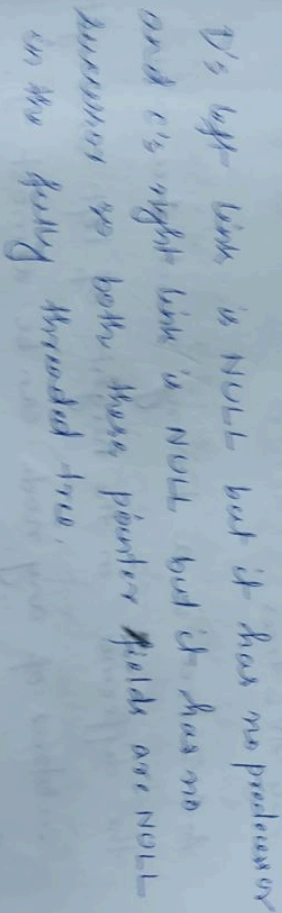 D's left link is NULL but it has no predecessor
and C's right link is NULL but it has no
successor so both these pointer fields are NULL
in the fully threaded tree.